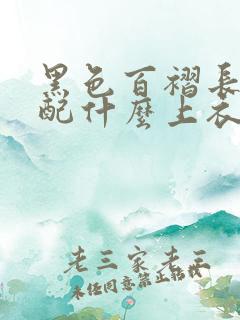 黑色百褶長
配什麼上衣
老三家老三
未经同意禁止转载